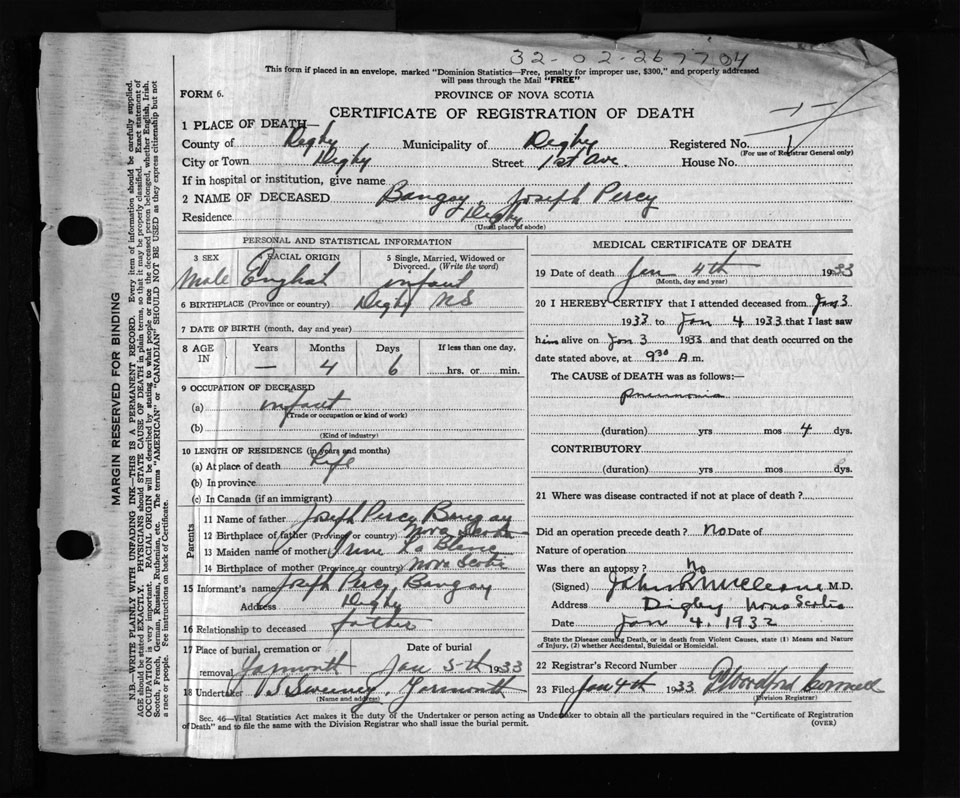 32-02-267704
This form if placed in an envelope, marked "Dominion Statistics—Free, penalty for improper use, $300," and properly addressed
will pass through the Mail "FREE"
FORM 6.
PROVINCE OF NOVA SCOTIA
CERTIFICATE OF REGISTRATION OF DEATH
1 PLACE OF DEATH—
County of Digby Municipality of Digby Registered No.
(For use of Registrar General only)
City or Town Digby Street 1st Ave House No.
If in hospital or institution, give name
2 NAME OF DECEASED Bangay, Joseph Percy
Residence Digby
(Usual place of abode)
PERSONAL AND STATISTICAL INFORMATION
3 SEX RACIAL ORIGIN 5 Single, Married, Widowed or
Divorced. (Write the word)
Male English infant
6 BIRTHPLACE (Province or country) Digby N S
7 DATE OF BIRTH (month, day and year)
8 AGE IN Years Months Days If less than one day,
— 4 6 hrs. or min.
9 OCCUPATION OF DECEASED
(a) infant
(Trade or occupation or kind of work)
(b)
(Kind of industry)
10 LENGTH OF RESIDENCE (in years and months)
(a) At place of death Life
(b) In province
(c) In Canada (if an immigrant)
Parents
11 Name of father Joseph Percy Bangay
12 Birthplace of father (Province or country) Nova Scotia
13 Maiden name of mother Irene La Blanc
14 Birthplace of mother (Province or country) Nova Scotia
15 Informant's name Joseph Percy Bangay
Address Digby
16 Relationship to deceased father
17 Place of burial, cremation or Date of burial
removal Yarmouth Jan 5th 1933
18 Undertaker Sweeney, Yarmouth
(Name and address)
MEDICAL CERTIFICATE OF DEATH
19 Date of death Jan 4th 1933
(Month, day and year)
20 I HEREBY CERTIFY that I attended deceased from Jan 3
1933 to Jan 4 1933 that I last saw
him alive on Jan 3 1933 and that death occurred on the
date stated above, at 9 30 A. m.
The CAUSE of DEATH was as follows:—
pneumonia
(duration) yrs mos 4 dys.
CONTRIBUTORY
(duration) yrs mos dys.
21 Where was disease contracted if not at place of death?
Did an operation precede death? No Date of
Nature of operation
Was there an autopsy? No
(Signed) John R McCleave M.D.
Address Digby Nova Scotia
Date Jan 4. 1932
State the Disease causing Death, or in death from Violent Causes, state (1) Means and Nature
of Injury, (2) whether Accidental, Suicidal or Homicidal.
22 Registrar's Record Number
23 Filed Jan 4th 1933
(Division Registrar)
Sec. 46—Vital Statistics Act makes it the duty of the Undertaker or person acting as Undertaker to obtain all the particulars required in the "Certificate of Registration
of Death" and to file the same with the Division Registrar who shall issue the burial permit.
(OVER)
MARGIN RESERVED FOR BINDING
N.B.—WRITE PLAINLY WITH UNFADING INK—THIS IS A PERMANENT RECORD. Every item of information should be carefully supplied.
AGE should be stated EXACTLY. PHYSICIANS should STATE CAUSE OF DEATH in plain terms, so that it may be properly classified. Exact statement of
OCCUPATION is very important. RACIAL ORIGIN will be described by stating to what people or race the deceased person belonged, whether English, Irish,
Scotch, French, German, Russian, Ruthenian, etc. The terms "AMERICAN" or "CANADIAN" SHOULD NOT BE USED as they express citizenship but not
a race or people. See instructions on back of Certificate.